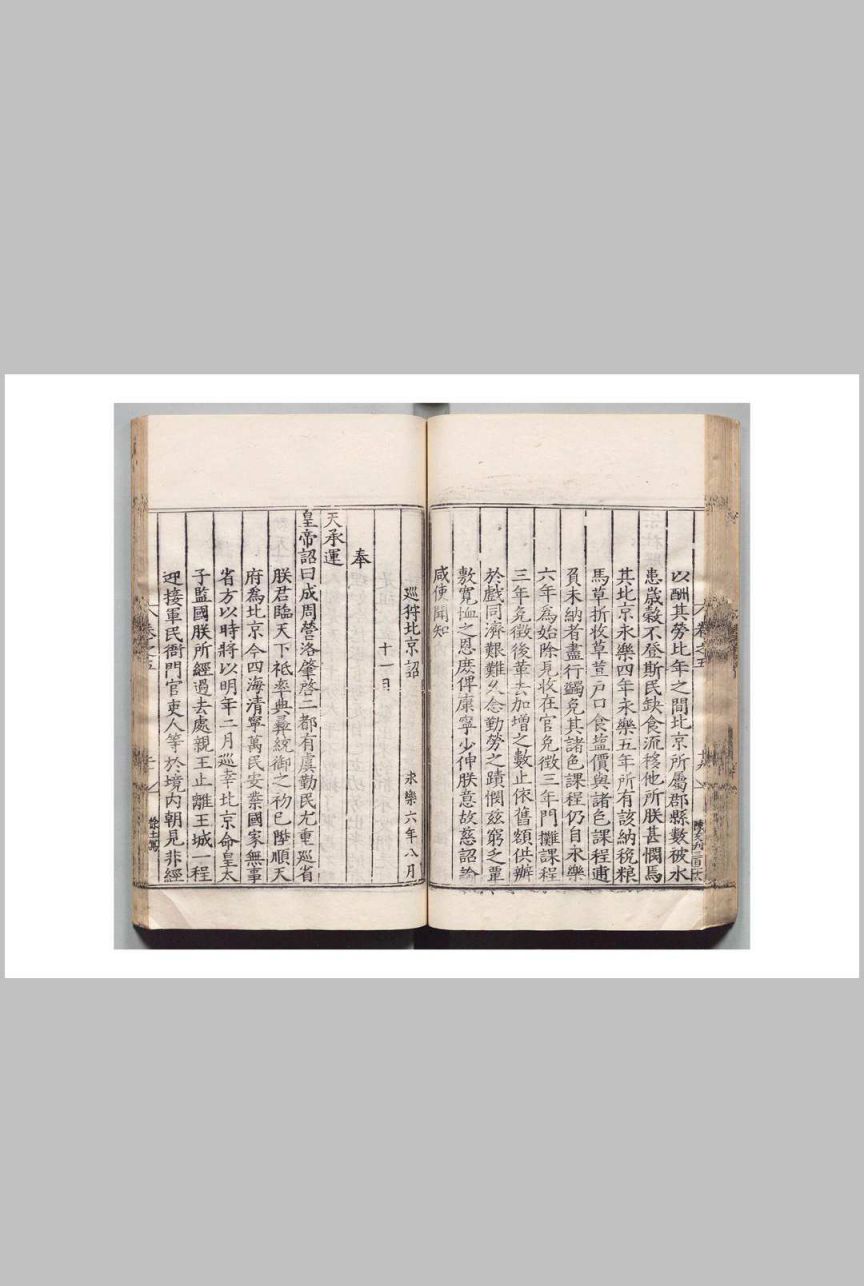 以酬其勞比年之間北京所屬郡縣數被水
患歲穀不登斯民缺食流移他所朕甚憫焉
其北京永樂四年永樂五年所有該納稅粮
馬草折收草荳戶口食塩價與諸色課程逋
負未納者盡行蠲免其諸色課程仍自永樂
六年為始除見收在官免徵三年門攤課程
三年免徵後革去加增之數止依舊額供辦
於戲同濟艱難久念勤勞之蹟憫茲窮乏覃
敷寬恤之恩庶俾康寧少伸朕意故茲詔諭
咸使聞知
巡狩北京詔 永樂六年八月
十一日
奉
天承運
皇帝詔曰成周營洛肇啓二都有虞勤民尤重巡省
朕君臨天下祗率典彝統御之初已陞順天
府為北京今四海清寧萬民安業國家無事
省方以時將以明年二月巡幸北京命皇太
子監國朕所經過去處親王止離王城一程
迎接軍民衙門官吏人等於境内朝見非經
卷之五
徐士駡